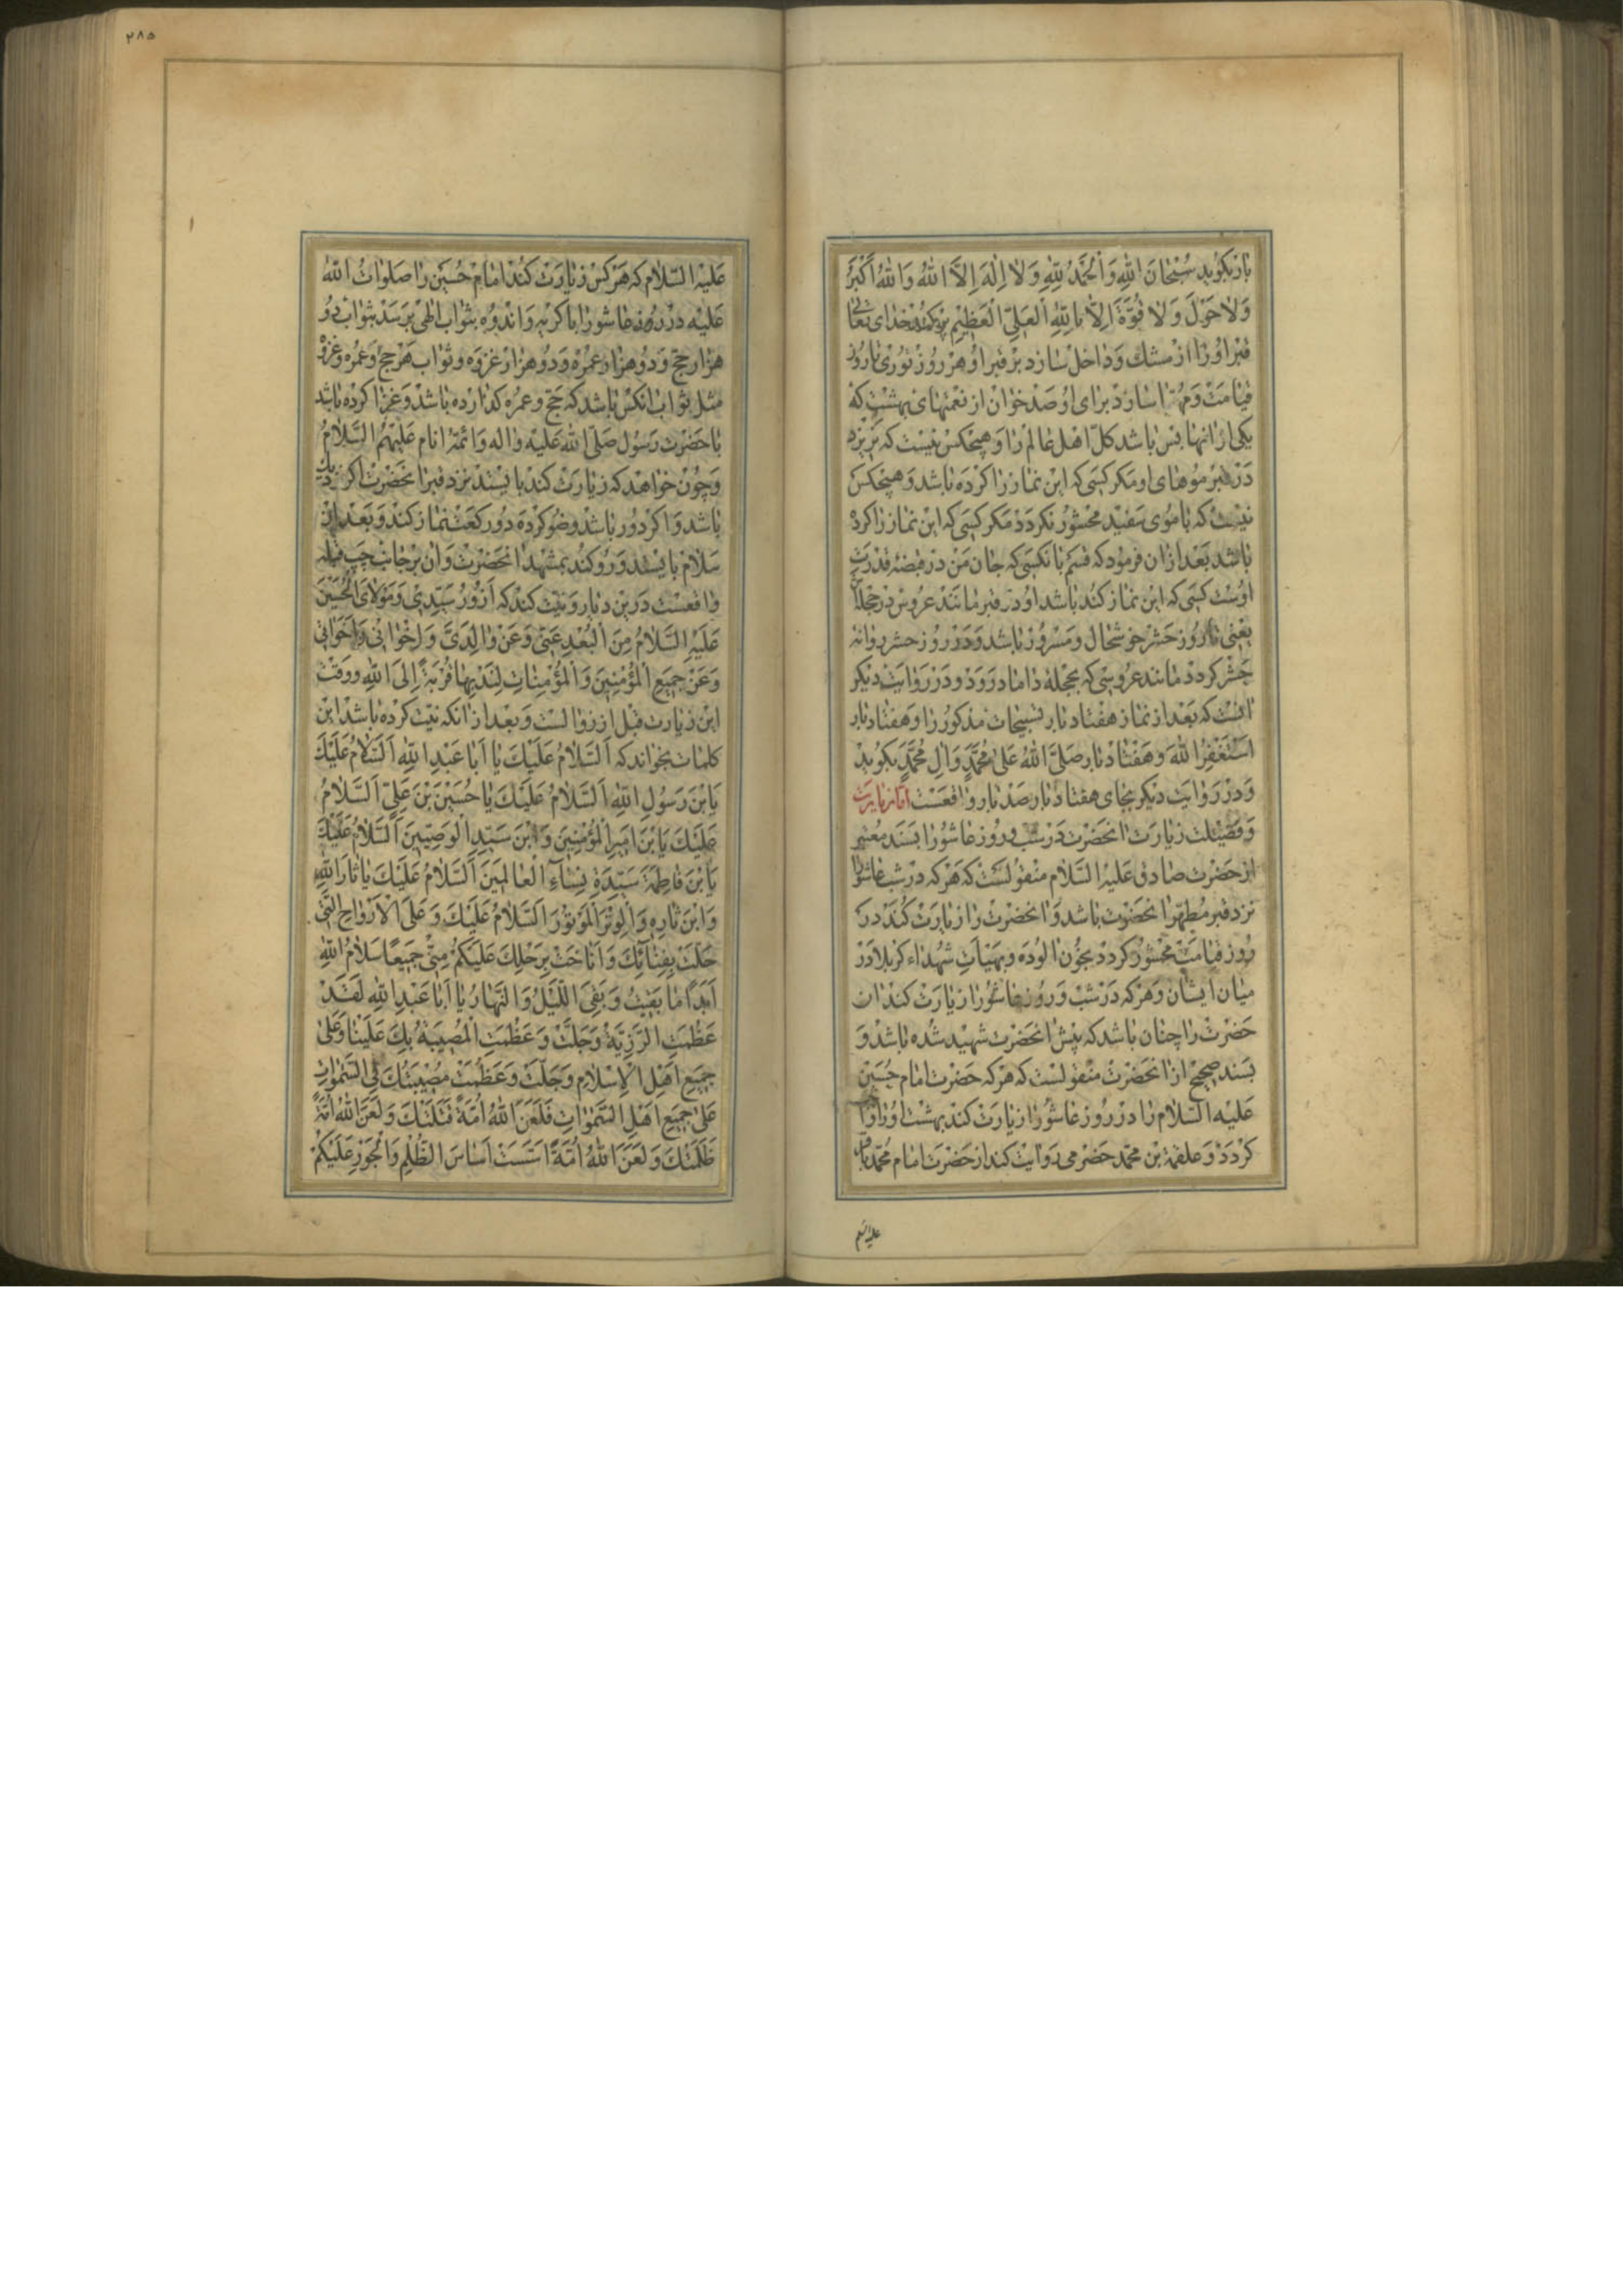 بار بکوید سُبْحٰانَ اللّٰهِ وَالْحَمْدُ لِلّٰهِ وَلٰا اِلٰهَ اِلَّا اللّٰهُ وَاللّٰهُ اَکْبَرُ
وَلٰا حَوْلَ وَلٰا قُوَّةَ اِلّٰا بِاللّٰهِ الْعَلِیِّ الْعَظیٖمِ پر کند خدای تعالی
قبر او را از مشك و داخل سازد بر قبر او هر روز نوری تا روز
قیامت و مهیّا سازد برای او صد خوان از نعمتهای بهشت که
یکی از انها بس باشد کلّ اهل عالم را و هیچکس نیست که بریزد
در قبر موهای او مکر کسی که این نماز را کرده باشد و هیچکس
نیست که با موی سفید محشور نکردد مکر کسی که این نماز را کرده
باشد بعد از ان فرمود که قسم بانکسی که جان من در قبضهٔ قدرت
اوست کسی که این نماز کند باشد او در قبر مانند عروس در حجله
یعنی تا روز حشر خوشحال و مسرور باشد و در روز حشر روانه
حشر کردد مانند عروسی که بحجلهٔ داماد رود و در روایت دیکر
انست که بعد از نماز هفتاد بار تسبیحات مذکور را و هفتاد بار
اَسْتَغْفِرُ اللّٰهَ و هفتاد بار صَلَّی اللّٰهُ عَلٰی مُحَمَّدٍ وَاٰلِ مُحَمَّدٍ بکوید
و در روایت دیکر بجای هفتاد بار صد بار واقعست امّا زیارت
و فضیلت زیارت انحضرت در شب و روز عاشورا بسند معتبر
از حضرت صادق علیه السّلام منقولست که هرکه در شب عاشورا
نزد قبر مطهّر انحضرت باشد و انحضرت را زیارت کند در
روز قیامت محشور کردد بخون الوده و بهیئات شهداء کربلا در
میان ایشان و هرکه در شب و روز عاشورا زیارت کند ان
حضرت را چنان باشد که پیش انحضرت شهید شده باشد و
بسند صحیح از انحضرت منقولست که هرکه حضرت امام حسین
علیه السّلام را در روز عاشورا زیارت کند بهشت او را
کردد و علقمة بن محمّد حضرمی روایت کند از حضرت امام محمّد باقر
علیه السلم
۲۸۵
علیه السّلام که هرکس زیارت کند امام حسین را صلوات اللّه
علیه در روز عاشورا با کریه و اندوه بثواب الهی برسد بثواب دو
هزار حجّ و دو هزار عمره و دو هزار غزوه و ثواب هر حج و عمره و غزوه
مثل ثواب انکس باشد که حجّ و عمره کذارده باشد و غزا کرده باشد
با حضرت رسول صلّی اللّه علیه و اله و ائمّهٔ انام علیهم السّلام
و چون خواهد که زیارت کند بایستد نزد قبر انحضرت اکر نزدیك
باشد و اکر دور باشد وضو کرده دو رکعت نماز کند و بعد از
سلام بایستد و رو کند بمشهد انحضرت و ان بر جانب چپ قبله
واقعست درین دیار و نیّت کند که اَزُورُ سَیِّدی وَمَوْلٰایَ الْحُسَیْنَ
عَلَیْهِ السَّلٰامُ مِنَ الْبُعْدِ عَنّی وَعَنْ وٰالِدَیَّ وَاِخْوٰانی وَاَخَوٰاتی
وَعَنْ جَمیعِ الْمُؤْمِنینَ وَالْمُؤْمِنٰاتِ لِنَدْبِهٰا قُرْبَةً اِلَی اللّٰهِ و وقت
این زیارت قبل از زوالست و بعد از انکه نیّت کرده باشد این
کلمات بخواند که اَلسَّلٰامُ عَلَیْكَ یٰا اَبٰا عَبْدِ اللّٰهِ اَلسَّلٰامُ عَلَیْكَ
یَابْنَ رَسُولِ اللّٰهِ اَلسَّلٰامُ عَلَیْكَ یٰا حُسَیْنَ بْنَ عَلِیٍّ اَلسَّلٰامُ
عَلَیْكَ یَابْنَ اَمیرِ الْمُؤْمِنینَ وَابْنَ سَیِّدِ الْوَصِیّینَ اَلسَّلٰامُ عَلَیْكَ
یَابْنَ فٰاطِمَةَ سَیِّدَةِ نِسٰاءِ الْعٰالَمینَ اَلسَّلٰامُ عَلَیْكَ یٰا ثٰارَ اللّٰهِ
وَابْنَ ثٰارِهِ وَالْوِتْرَ الْمَوْتُورَ اَلسَّلٰامُ عَلَیْكَ وَعَلَی الْاَرْوٰاحِ الَّتی
حَلَّتْ بِفِنٰائِكَ وَاَنٰاخَتْ بِرَحْلِكَ عَلَیْکُمْ مِنّی جَمیعًا سَلٰامُ اللّٰهِ
اَبَدًا مٰا بَقیتُ وَبَقِیَ اللَّیْلُ وَالنَّهٰارُ یٰا اَبٰا عَبْدِ اللّٰهِ لَقَدْ
عَظُمَتِ الرَّزِیَّةُ وَجَلَّتْ وَعَظُمَتِ الْمُصیبَةُ بِكَ عَلَیْنٰا وَعَلٰی
جَمیعِ اَهْلِ الْاِسْلٰامِ وَجَلَّتْ وَعَظُمَتْ مُصیبَتُكَ فِی السَّمٰوٰاتِ
عَلٰی جَمیعِ اَهْلِ السَّمٰوٰاتِ فَلَعَنَ اللّٰهُ اُمَّةً قَتَلَتْكَ وَلَعَنَ اللّٰهُ اُمَّةً
ظَلَمَتْكَ وَلَعَنَ اللّٰهُ اُمَّةً اَسَّسَتْ اَسٰاسَ الظُّلْمِ وَالْجَوْرِ عَلَیْکُمْ